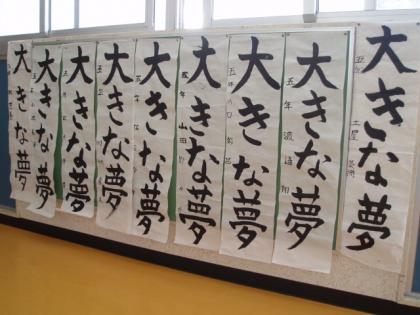 大きな夢
五年 土屋
大きな夢
五年
大きな夢
五年
大きな夢
五年 山田
大きな夢
大きな夢
大きな夢
五年
大きな夢
五年
大きな夢